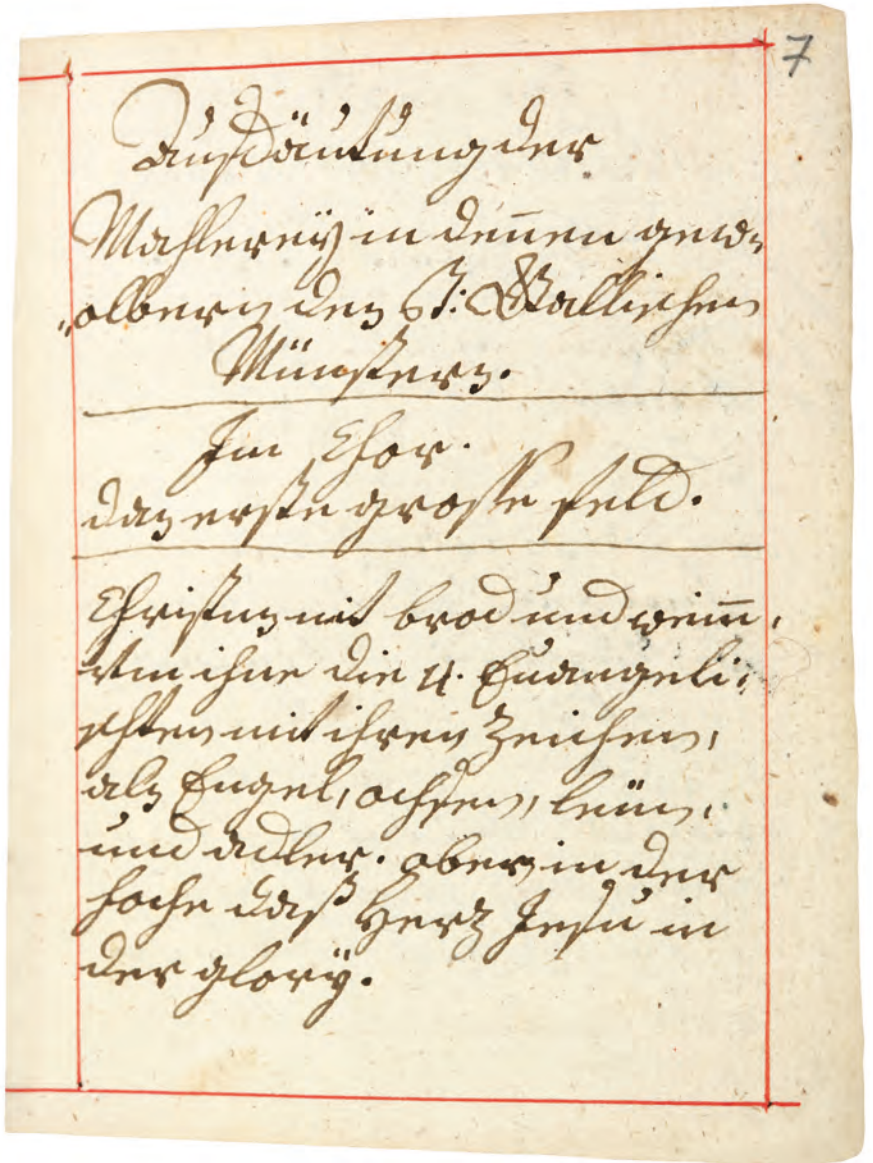 7
Ausdäutung der
Mahlereÿ in denen gew-
„olbern des St: Gallischen
Münsters.
Im Chor.
das erste grosse feld.
Christus mit brod und wein̄,
Vm ihne die 4. Euangeli:
schten mit ihren Zeichen,
als Engel, ochsen, leüw,
und adler. oben in der
hoche daß Herz Jesu in
der glorÿ.